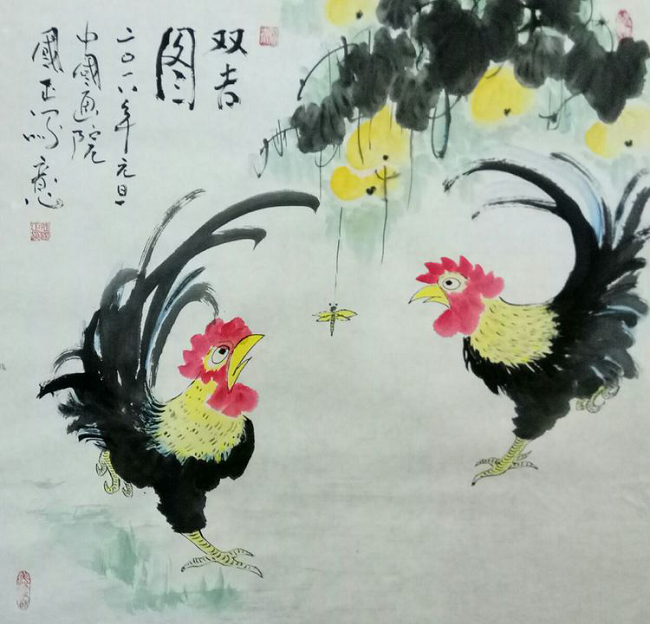 双吉
图
二〇一八年元旦
中國画院
國正写意